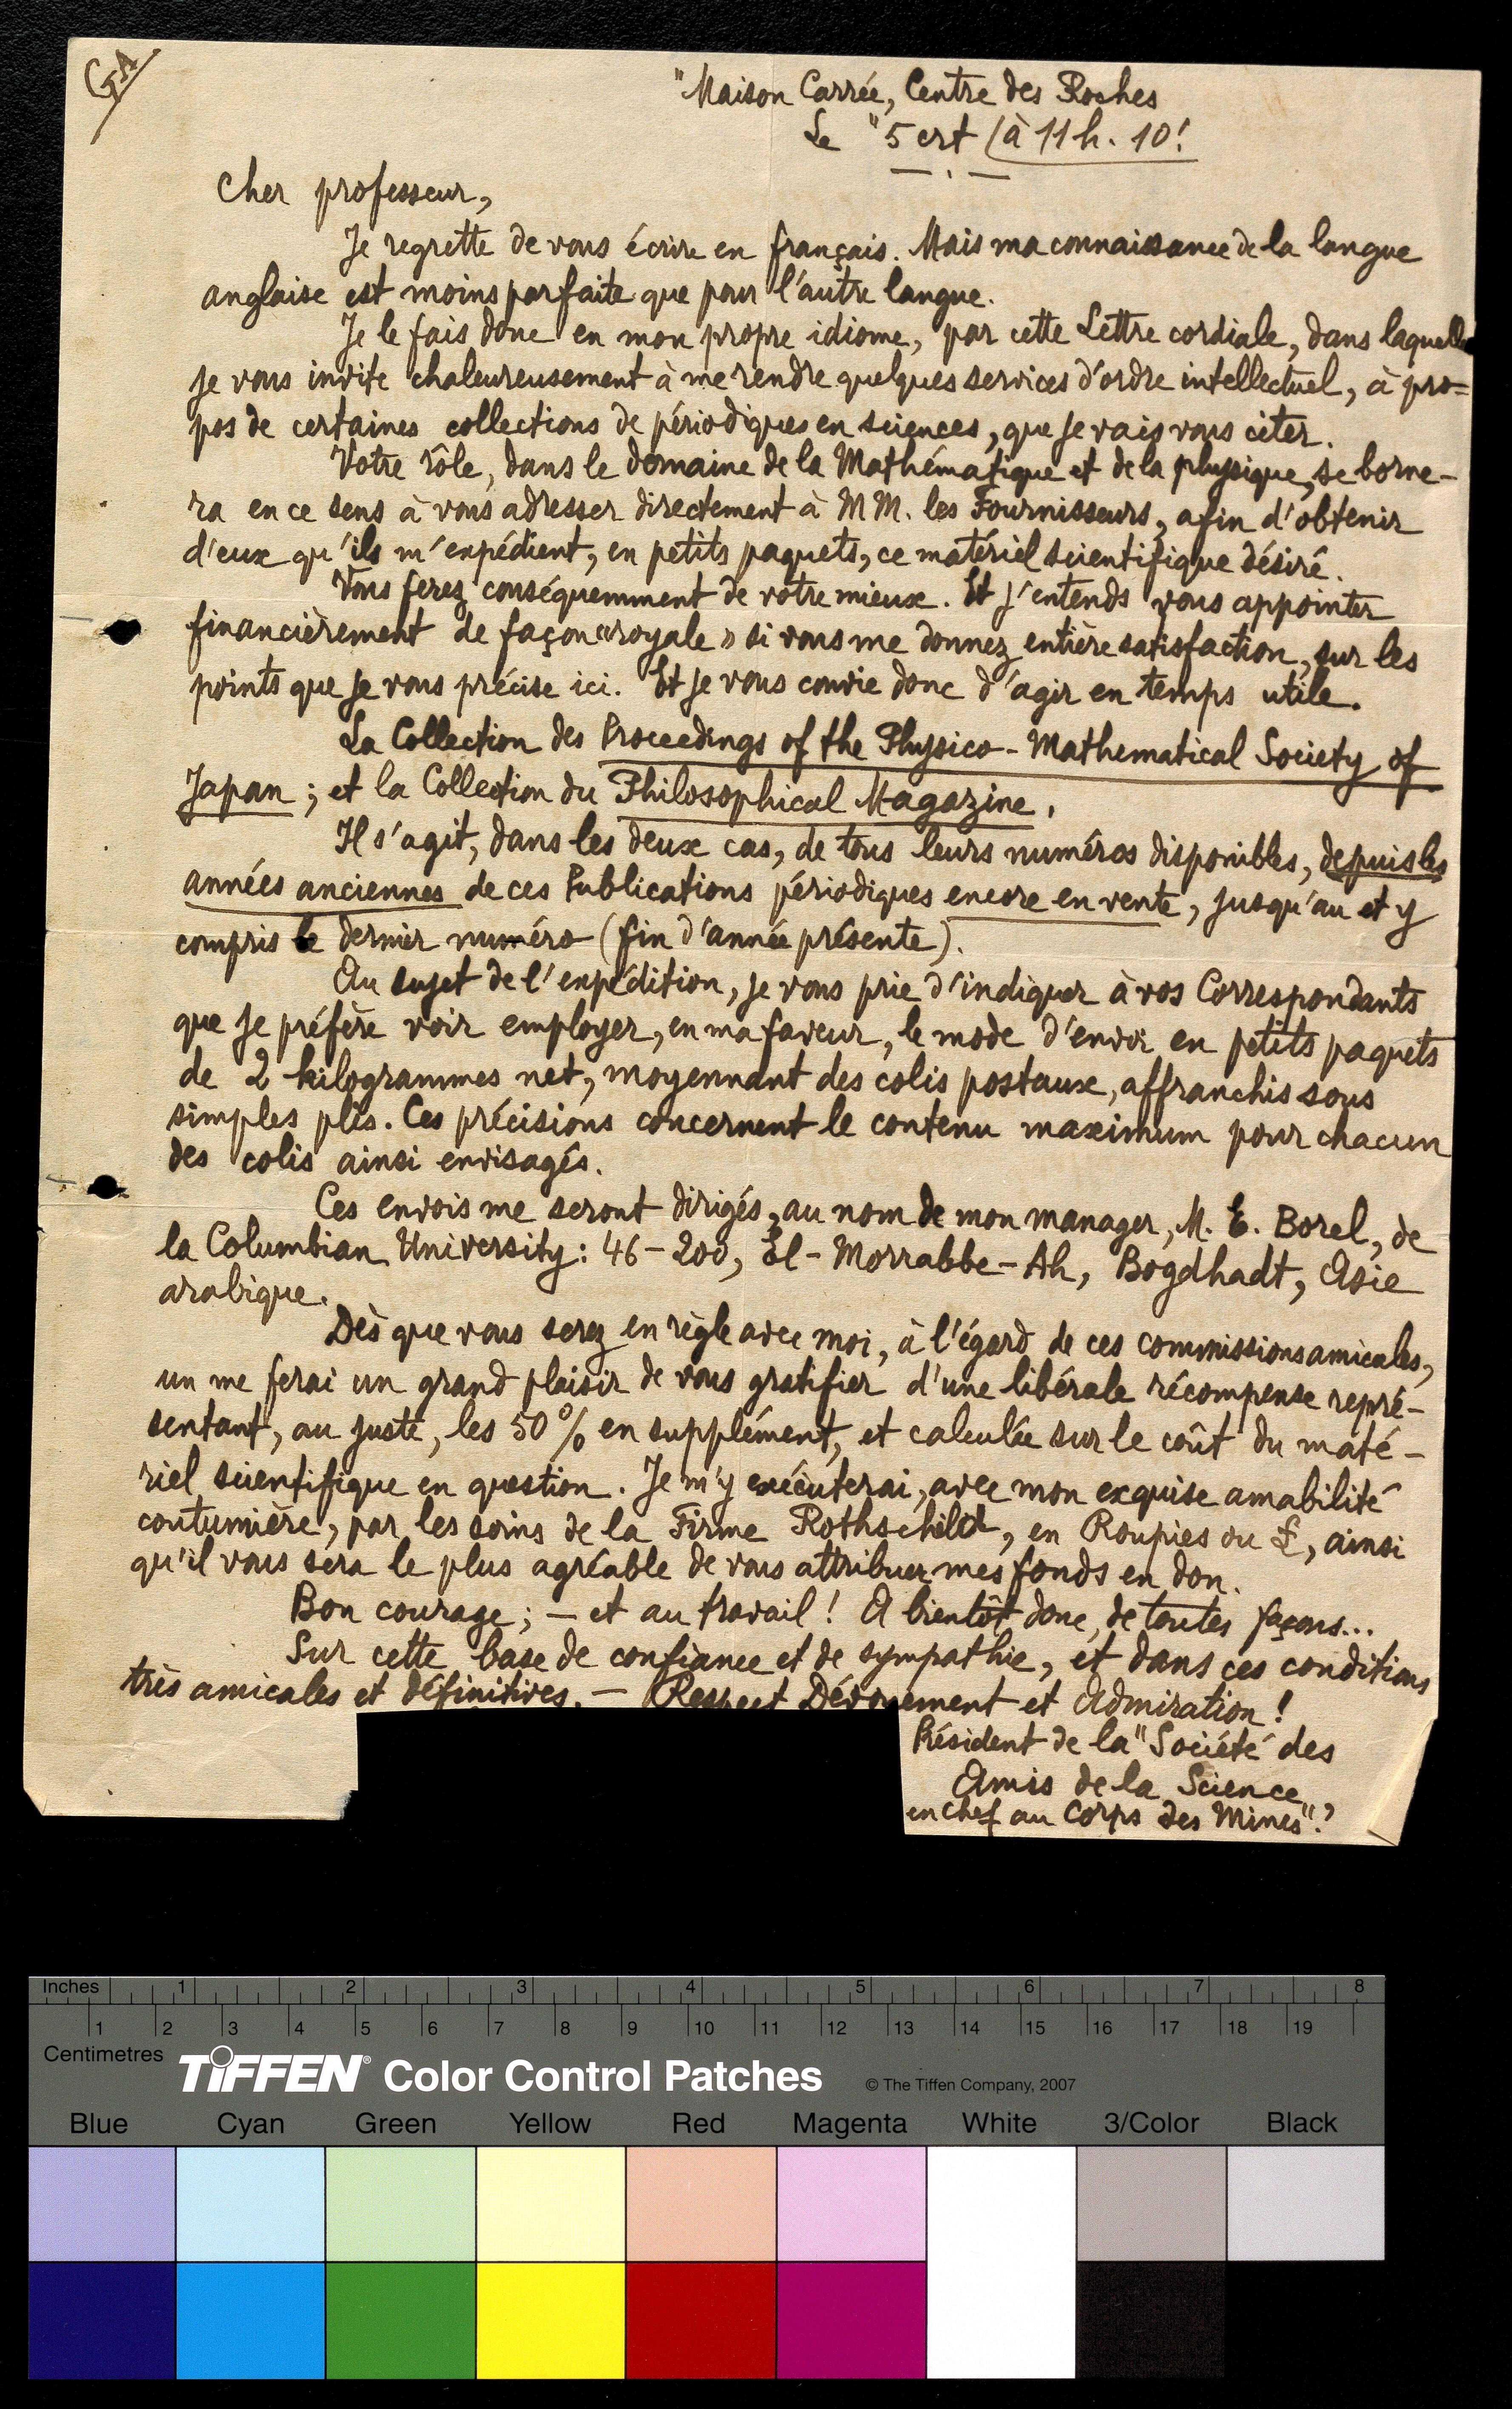 GA
"Maison Carrée, Centre des Roches
Le "5 crt (à 11 h. 10!
Cher professeur,
Je regrette de vous écrire en français. Mais ma connaissance de la langue
anglaise est moins parfaite que pour l'autre langue.
Je le fais donc en mon propre idiome, par cette Lettre cordiale, dans laquelle
je vous invite chaleureusement à me rendre quelques services d'ordre intellectuel, à pro=
pos de certaines collections de périodiques en sciences, que je vais vous citer.
Votre rôle, dans le domaine de la Mathématique et de la physique, se borne-
ra en ce sens à vous adresser directement à MM. les Fournisseurs, afin d'obtenir
d'eux qu'ils m'expédient, en petits paquets, ce matériel scientifique désiré.
Vous ferez conséquemment de votre mieux. Et j'entends vous appointer
financièrement de façon «royale» si vous me donnez entière satisfaction, sur les
points que je vous précise ici. Et je vous convie donc d'agir en temps utile.
La Collection des Proceedings of the Physico-Mathematical Society of
Japan; et la Collection du Philosophical Magazine.
Il s'agit, dans les deux cas, de tous leurs numéros disponibles, depuis les
années anciennes de ces Publications périodiques encore en vente, jusqu'au et y
compris le dernier numéro (fin d'année présente).
Au sujet de l'expédition, je vous prie d'indiquer à vos Correspondants
que je préfère voir employer, en ma faveur, le mode d'envoi en petits paquets
de 2 kilogrammes net, moyennant des colis postaux, affranchis sous
simples plis. Ces précisions concernent le contenu maximum pour chacun
des colis ainsi envisagés.
Ces envois me seront dirigés, au nom de mon manager, M. E. Borel, de
la Columbian University: 46-200, El-Morrabbe-Ah, Bogdhadt, Asie
arabique.
Dès que vous serez en règle avec moi, à l'égard de ces commissions amicales,
un me ferai un grand plaisir de vous gratifier d'une libérale récompense repré-
sentant, au juste, les 50% en supplément, et calculée sur le coût du maté-
riel scientifique en question. Je m'y exécuterai, avec mon exquise amabilité
coutumière, par les soins de la Firme Rothschild, en Roupies ou £, ainsi
qu'il vous sera le plus agréable de vous attribuer mes fonds en don.
Bon courage; — et au travail! A bientôt donc, de toutes façons...
Sur cette base de confiance et de sympathie, et dans ces conditions
très amicales et définitives. — Respect Dévouement et Admiration!
Président de la "Société des
Amis de la Science,
en chef au Corps des Mines".
Inches 1 2 3 4 5 6 7 8
1 2 3 4 5 6 7 8 9 10 11 12 13 14 15 16 17 18 19
Centimetres
TIFFEN® Color Control Patches © The Tiffen Company, 2007
Blue Cyan Green Yellow Red Magenta White 3/Color Black